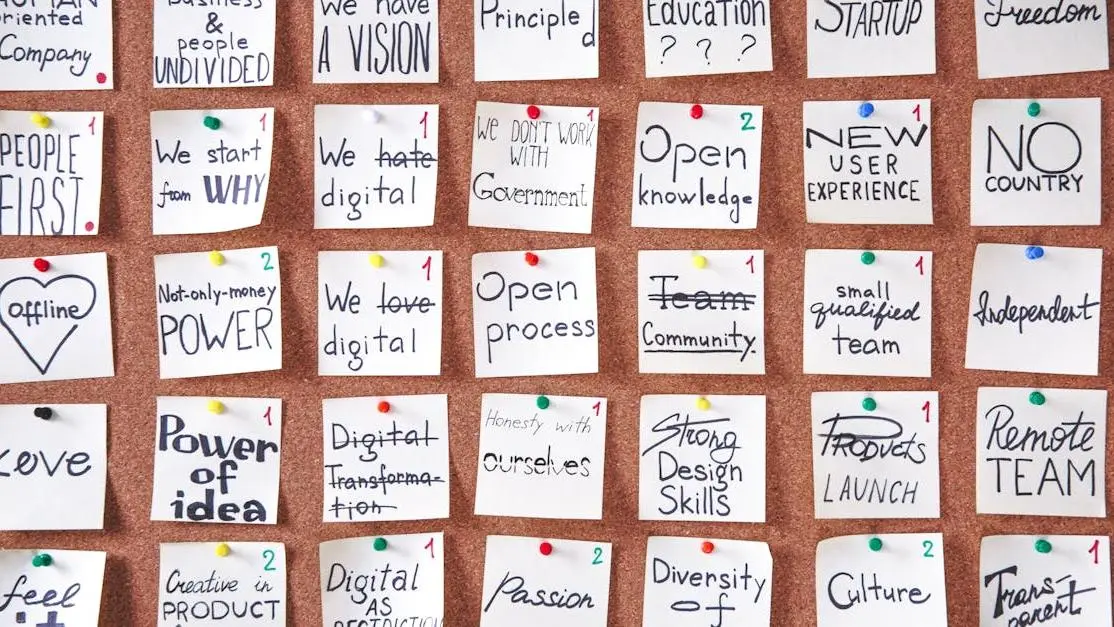 HUMAN
oriented
Company
Business
&
people
UNDIVIDED
We have
A VISION
Principle
d
Education
? ? ?
STARTUP
Freedom
1
PEOPLE
FIRST.
1
We start
from WHY
1
We hate
digital
1
We DON'T WORK
WITH
Government
2
Open
knowledge
1
NEW
USER
EXPERIENCE
NO
COUNTRY
offline
2
Not-only-money
POWER
1
We love
digital
Open
process
1
Team
Community.
1
small
qualified
team
Independent
Love
1
Power
of
idea
Digital
Transforma-
tion
1
Honesty with
ourselves
Strong
Design
Skills
1
PRODUCTS
LAUNCH
Remote
TEAM
feel
it
2
Creative in
PRODUCT
1
Digital
AS
2
Passion
Diversity
of
2
Culture
1
Trans-
parent